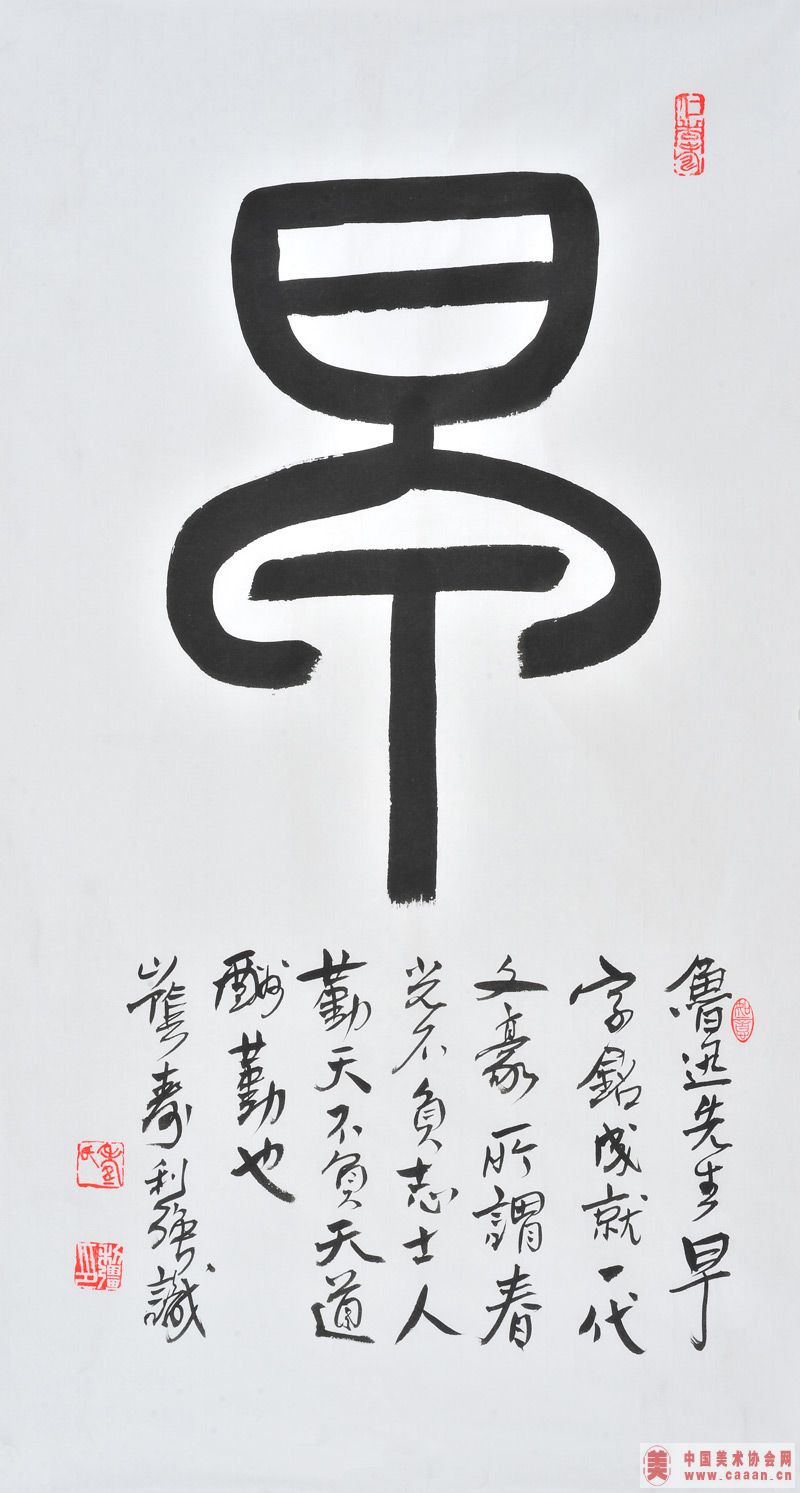 早
魯迅先生早
字銘成就一代
文豪所謂春
光不負志士人
勤天不負天道
酬勤也
壽利強識
中国美术协会网
www.caaan.cn